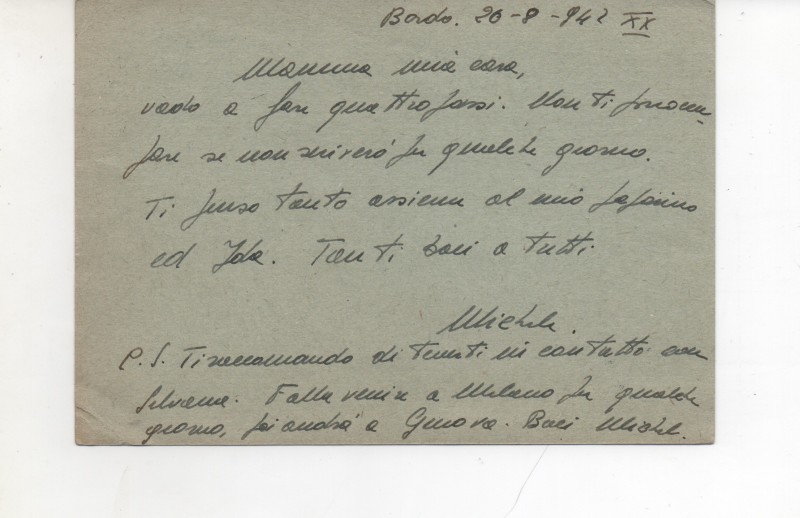 Bordo. 26-8-942 XX
Mamma mia cara,
vado a fare quattro passi. Non ti preoccu-
pare se non scriverò per qualche giorno.
Ti penso tanto assieme al mio paparino
ed Ida. Tanti baci a tutti.
Michele.
P.S. Ti raccomando di tenerti in contatto con
Silvana. Falla venire a Milano per qualche
giorno, poi andrà a Genova. Baci Michele.